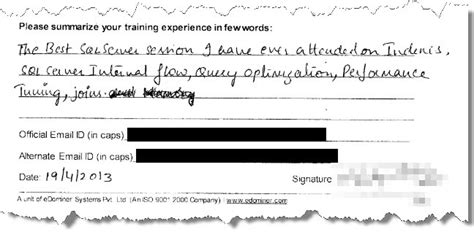 Please summarize your training experience in few words:
The Best SQL Server session I have ever attended on Indexes,
SQL Server Internal flow, Query Optimization, Performance
Tuning, joins
Official Email ID (in caps)
Alternate Email ID (in caps)
Date: 19/4/2013 Signature
A unit of eDominer Systems Pvt. Ltd. (An ISO 9001 2000 Company) | www.edominer.com